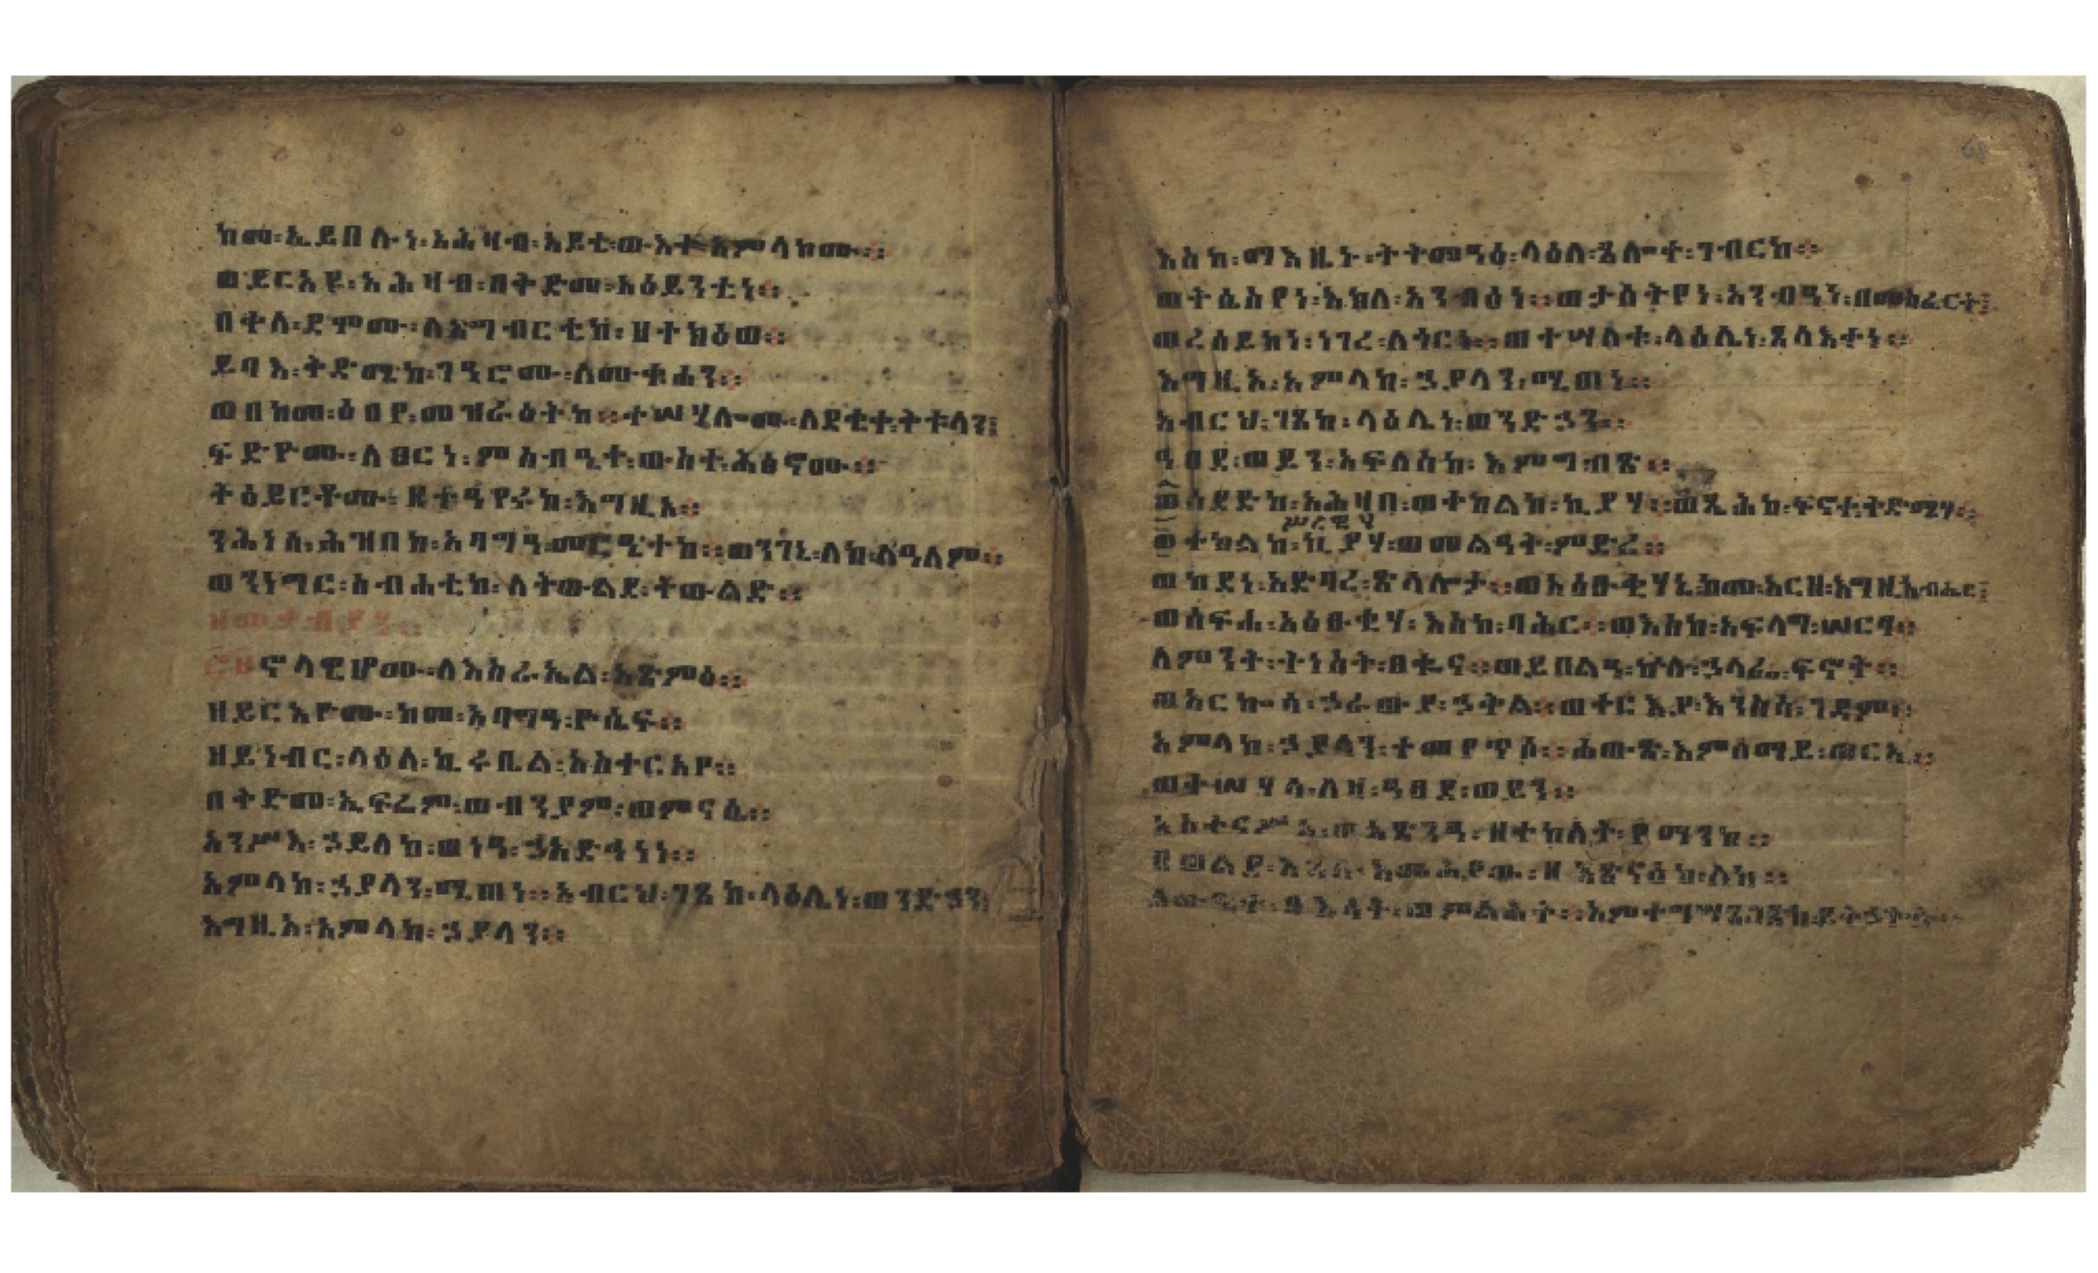 ከመ፡ኢይበሉነ፡አሕዛብ፡አይቴ፡ውእቱ፡አምላኮሙ።
ወይርአዩ፡አሕዛብ፡በቅድመ፡አዕይንቲነ።
በቀለ፡ደሞሙ፡ለአግብርቲከ፡ዘተክዕወ።
ይባእ፡ቅድሜከ፡ገዓሮሙ፡ለሙቁሐን።
ወበከመ፡ዕበየ፡መዝራዕትከ።ተሣሃሎሙ፡ለደቂቀ፡ቅቱላን፤
ፍድዮሙ፡ለፀርነ፡ምስብዒተ፡ውስተ፡ሕፅኖሙ።
ትዕይርቶሙ፡ዘተዓየሩከ፡እግዚኦ።
ንሕነሰ፡ሕዝበከ፡አባግዓ፡መርዔትከ።ወንገኒ፡ለከ፡ለዓለም።
ወንነግር፡ስብሐቲከ፡ለትውልደ፡ትውልድ።
ኖላዊሆሙ፡ለእስራኤል፡አጽምዕ።
ዘይርእዮሙ፡ከመ፡አባግዓ፡ዮሴፍ።
ዘይነብር፡ላዕለ፡ኪሩቤል፡አስተርአየ።
በቅድመ፡ኤፍሬም፡ወብንያም፡ወምናሴ።
አንሥእ፡ኃይለከ፡ወነዓ፡ኃአድኃነነ።
አምላክ፡ኃያላን፡ሚጠነ።አብርህ፡ገጸከ፡ላዕሌነ፡ወንድኃን፤
እግዚኦ፡አምላክ፡ኃያላን።
እስከ፡ማእዜኑ፡ትትመዓዕ፡ላዕለ፡ጸሎተ፡ገብርከ።
ወትሴስየነ፡እክለ፡አንብዕነ።ወታሰትየነ፡አንብዓነ፡በመስፈርት፤
ወረሰይከነ፡ነገረ፡ለጎርነ።ወተሣለቁ፡ላዕሌነ፡ጸላእትነ።
እግዚኦ፡አምላክ፡ኃያላን፡ሚጠነ።
አብርህ፡ገጸከ፡ላዕሌነ፡ወንድኃን።
ዓፀደ፡ወይን፡አፍለስከ፡እምግብጽ።
ወሰደድከ፡አሕዛበ፡ወተከልከ፡ኪያሃ።ወጼሕከ፡ፍኖተ፡ቅድሜሃ።
ሥረዊሃ
ወተከልከ፡ኪያሃ፡ወመልዓት፡ምድረ።
ወከደነ፡አድባረ፡ጽላሎታ።ወአዕፁቂሃኒ፡ከመ፡አርዘ፡እግዚአብሔር፤
ወሰፍሐ፡አዕፁቂሃ፡እስከ፡ባሕር።ወእስከ፡አፍላግ፡ሠርፃ።
ለምንት፡ትነስት፡ፀቈና።ወይበልዓ፡ኵሉ፡ኃላፌ፡ፍኖት።
ወአርኰሳ፡ኃራውያ፡ኃቅል።ወተርእያ፡እንስሳ፡ገዳም።
አምላክ፡ኃያላን፡ተመየጥ፡ሶ።ሐውጽ፡እምሰማይ፡ወርኢ።
ወትሣሃላ፡ለዛ፡ዓፀደ፡ወይን።